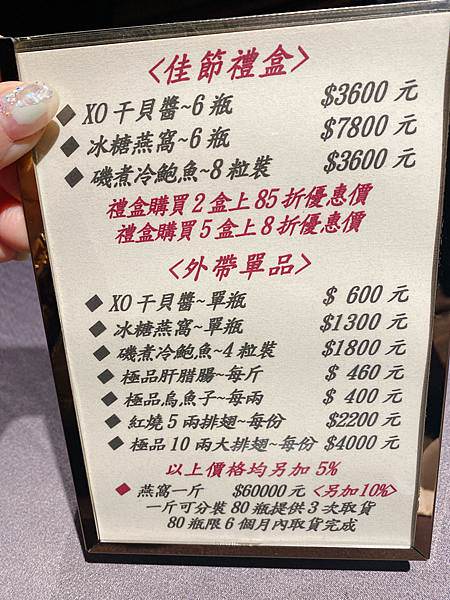 <佳節禮盒>
◆ XO干貝醬~6瓶 $3600元
◆ 冰糖燕窩~6瓶 $7800元
◆ 磯煮冷鮑魚~8粒裝 $3600元
禮盒購買2盒上85折優惠價
禮盒購買5盒上8折優惠價
<外帶單品>
◆ XO干貝醬~單瓶 $ 600元
◆ 冰糖燕窩~單瓶 $1300元
◆ 磯煮冷鮑魚~4粒裝 $1800元
◆ 極品肝腊腸~每斤 $ 460元
◆ 極品烏魚子~每兩 $ 400元
◆ 紅燒5兩排翅~每份 $2200元
◆ 極品10兩大排翅~每份 $4000元
以上價格均另加5%
◆ 燕窩一斤 $60000元 <另加10%>
一斤可分裝80瓶提供3次取貨
80瓶限6個月內取貨完成